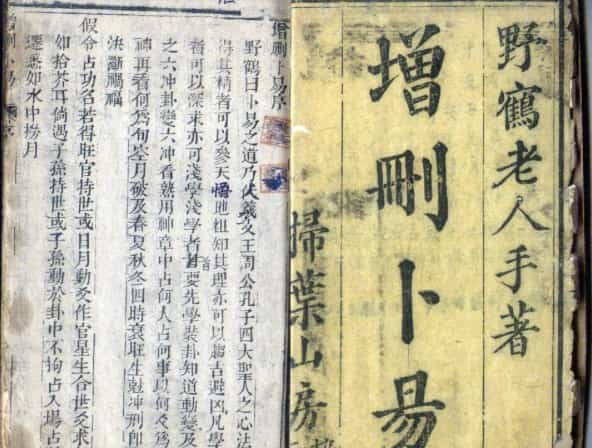 野鶴老人手著
增刪卜易
掃葉山房
增刪卜易序
野鶴曰卜易之道乃伏羲文王周公孔子四大聖人之心法
得其精者可以參天悟地粗知其理亦可以趨吉避凶凡學
者可以深求亦可淺學淺學者首要先學裝卦知道動變及
之六冲卦變六冲看熟用神章中占何人占何事以何爻爲
神再看何爲旬空月破及春夏秋冬四時衰旺生尅冲刑即
決斷禍福
假令占功名若得旺官持世或日月動爻作官星生合世爻求
如拾芥耳倘遇子孫持世或子孫動於卦中不拘占入場占
遷悉如水中撈月
增刪卜易